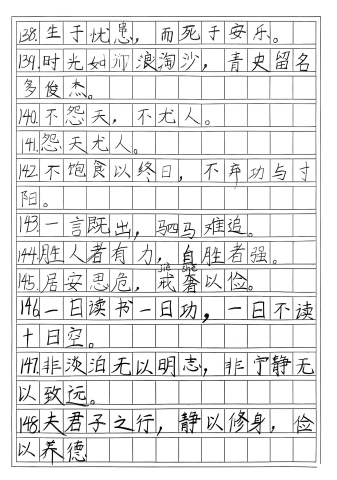 138.生于忧患，而死于安乐。
139.时光如河浪淘沙，青史留名
多俊杰。
140.不怨天，不尤人。
141.怨天尤人。
142.不饱食以终日，不弃功与寸
阳。
143.一言既出，驷马难追。
144.胜人者有力，自胜者强。
jiè shē
145.居安思危，戒奢以俭。
146.一日读书一日功，一日不读
十日空。
147.非淡泊无以明志，非宁静无
以致远。
148.夫君子之行，静以修身，俭
以养德